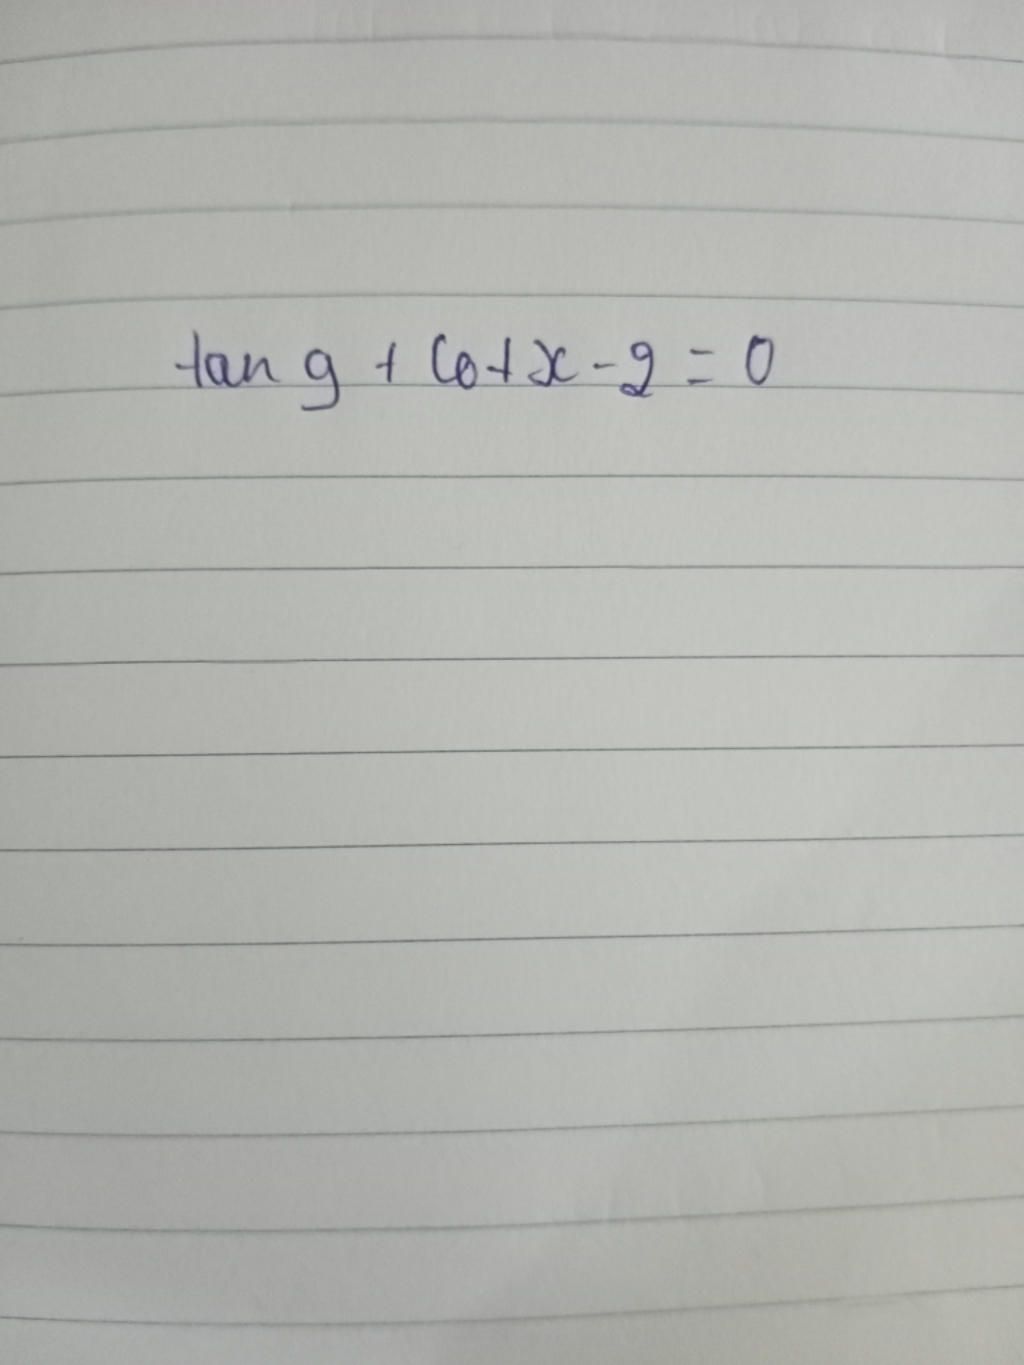 tan g + Cot x - 2 = 0